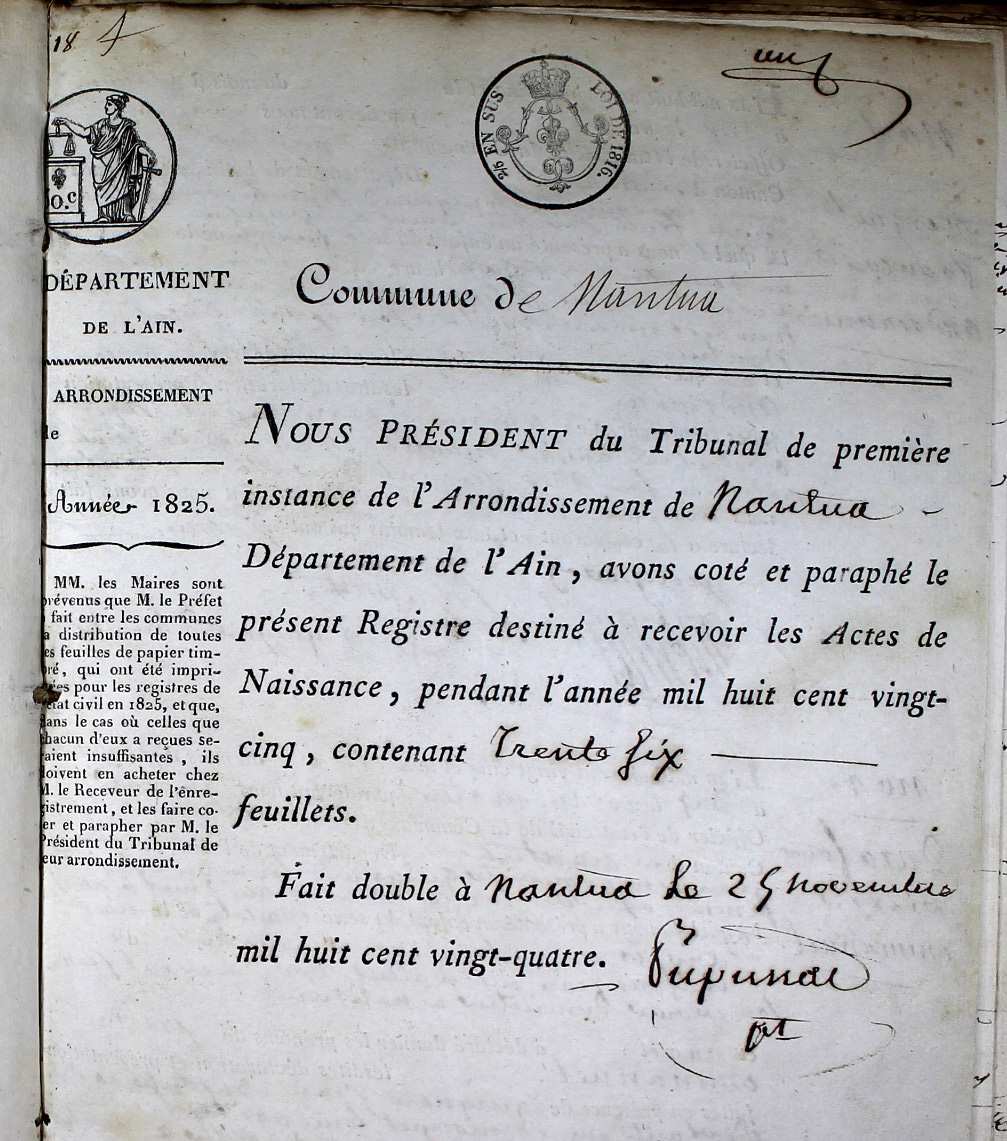 18
un
2/5 EN SUS LOI DE 1816.
0.c
DÉPARTEMENT
DE L'AIN.
ARRONDISSEMENT
de
Année 1825.
MM. les Maires sont
prévenus que M. le Préfet
a fait entre les communes
la distribution de toutes
les feuilles de papier tim-
bré, qui ont été impri-
mées pour les registres de
l'état civil en 1825, et que,
dans le cas où celles que
chacun d'eux a reçues se-
raient insuffisantes, ils
doivent en acheter chez
M. le Receveur de l'enre-
gistrement, et les faire co-
ter et parapher par M. le
Président du Tribunal de
leur arrondissement.
Commune de Nantua
NOUS PRÉSIDENT du Tribunal de première
instance de l'Arrondissement de Nantua
Département de l'Ain, avons coté et paraphé le
présent Registre destiné à recevoir les Actes de
Naissance, pendant l'année mil huit cent vingt-
cinq, contenant Trente six
feuillets.
Fait double à Nantua Le 25 novembre
mil huit cent vingt-quatre.
pt